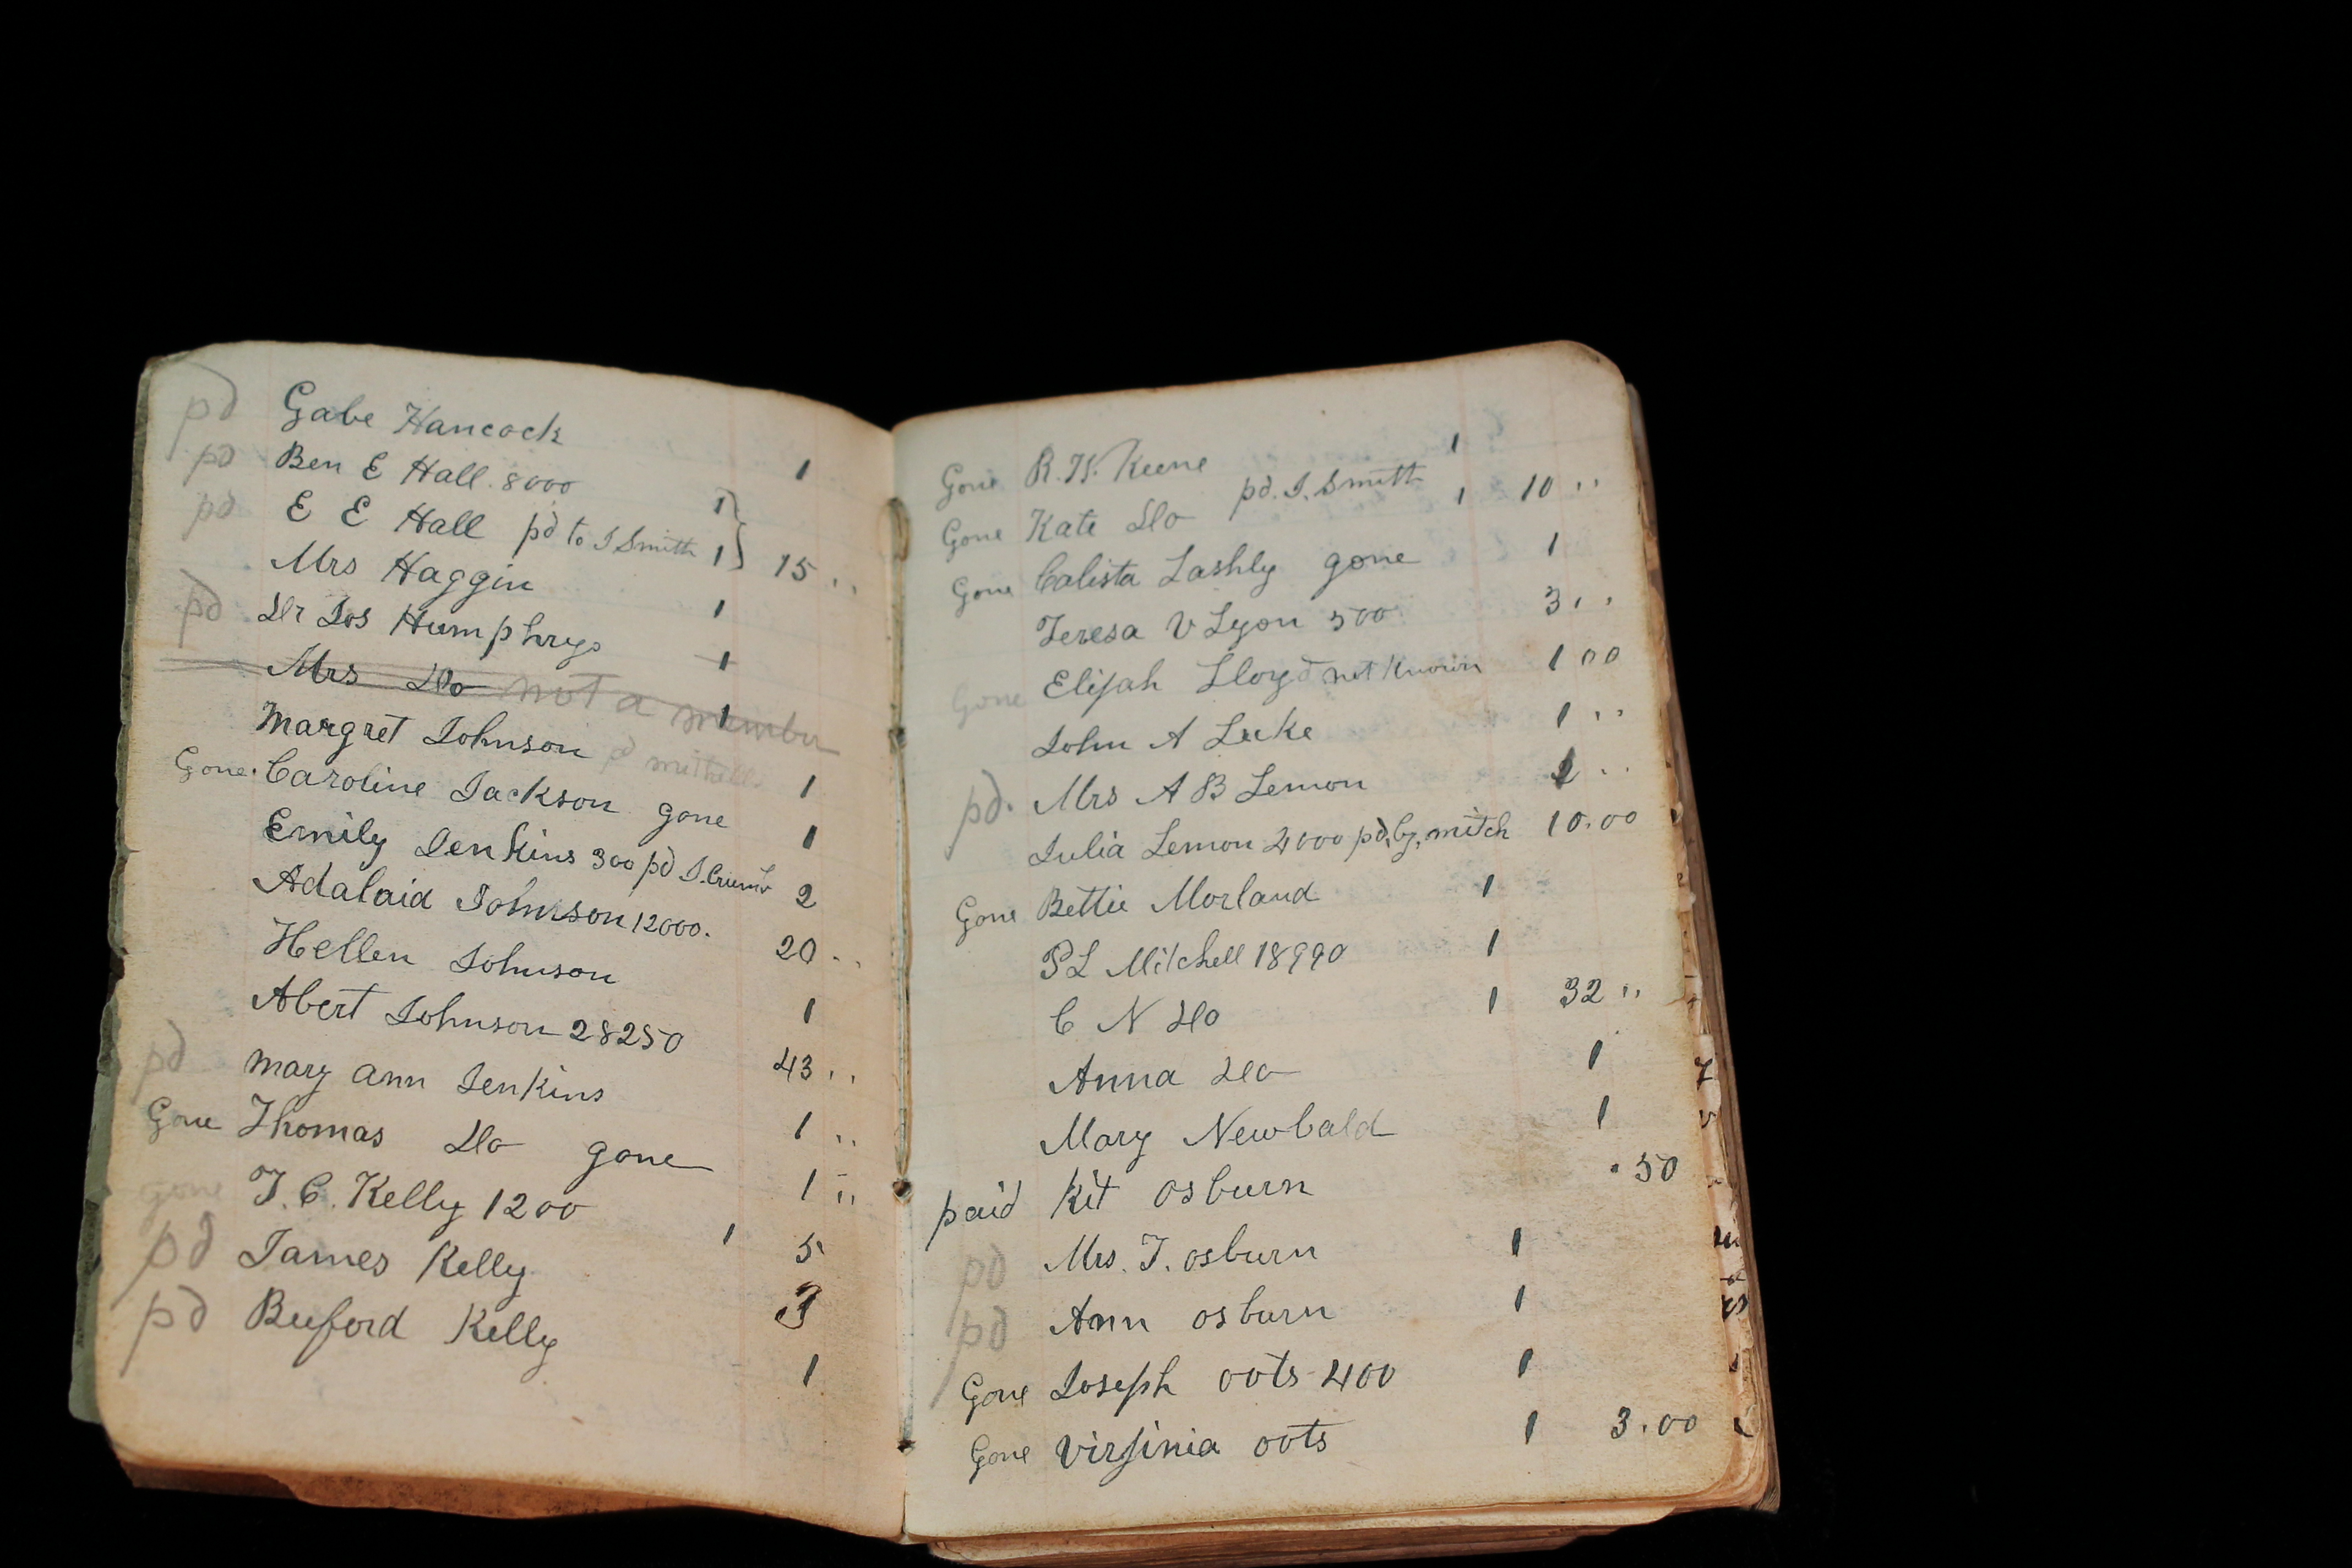 pd Gabe Hancock 1
pd Ben E Hall. 8000 1
pd E E Hall pd to J Smith 1 } 15 ..
Mrs Haggin 1
pd Dr Jos Humphrys 1
Mrs Do not a member 1
Margret Johnson pd mitchell 1
Gone. Caroline Jackson gone 1
Emily Jenkins 300 pd J. 2
Adalaid Johnson 12000. 20 ..
Hellen Johnson 1
Abert Johnson 28250 43 ..
pd Mary Ann Jenkins 1 ..
Gone Thomas Do gone 1 ..
gone T. C. Kelly 1200 1 5
pd James Kelly
pd Buford Kelly 1
Gone R. H. Keene 1
Gone Kate Do pd. J. Smith 1 10 ..
Gone Calista Lashly gone 1
Teresa V Lyon 500 3 ..
Gone Elijah Lloyd not Known 1 00
John A Luke 1 ..
pd. Mrs A B Lemon ..
Julia Lemon 4000 pd, by, mitch 10.00
Gone Bettie Morland 1
P L Mitchell 18990 1
C N Do 1 32 ..
Anna Do 1
Mary Newbald 1
paid Kit Osburn .50
pd Mrs. T. Osburn 1
pd Ann Osburn 1
Gone Joseph oots 400 1
Gone Virjinia oots 1 3.00